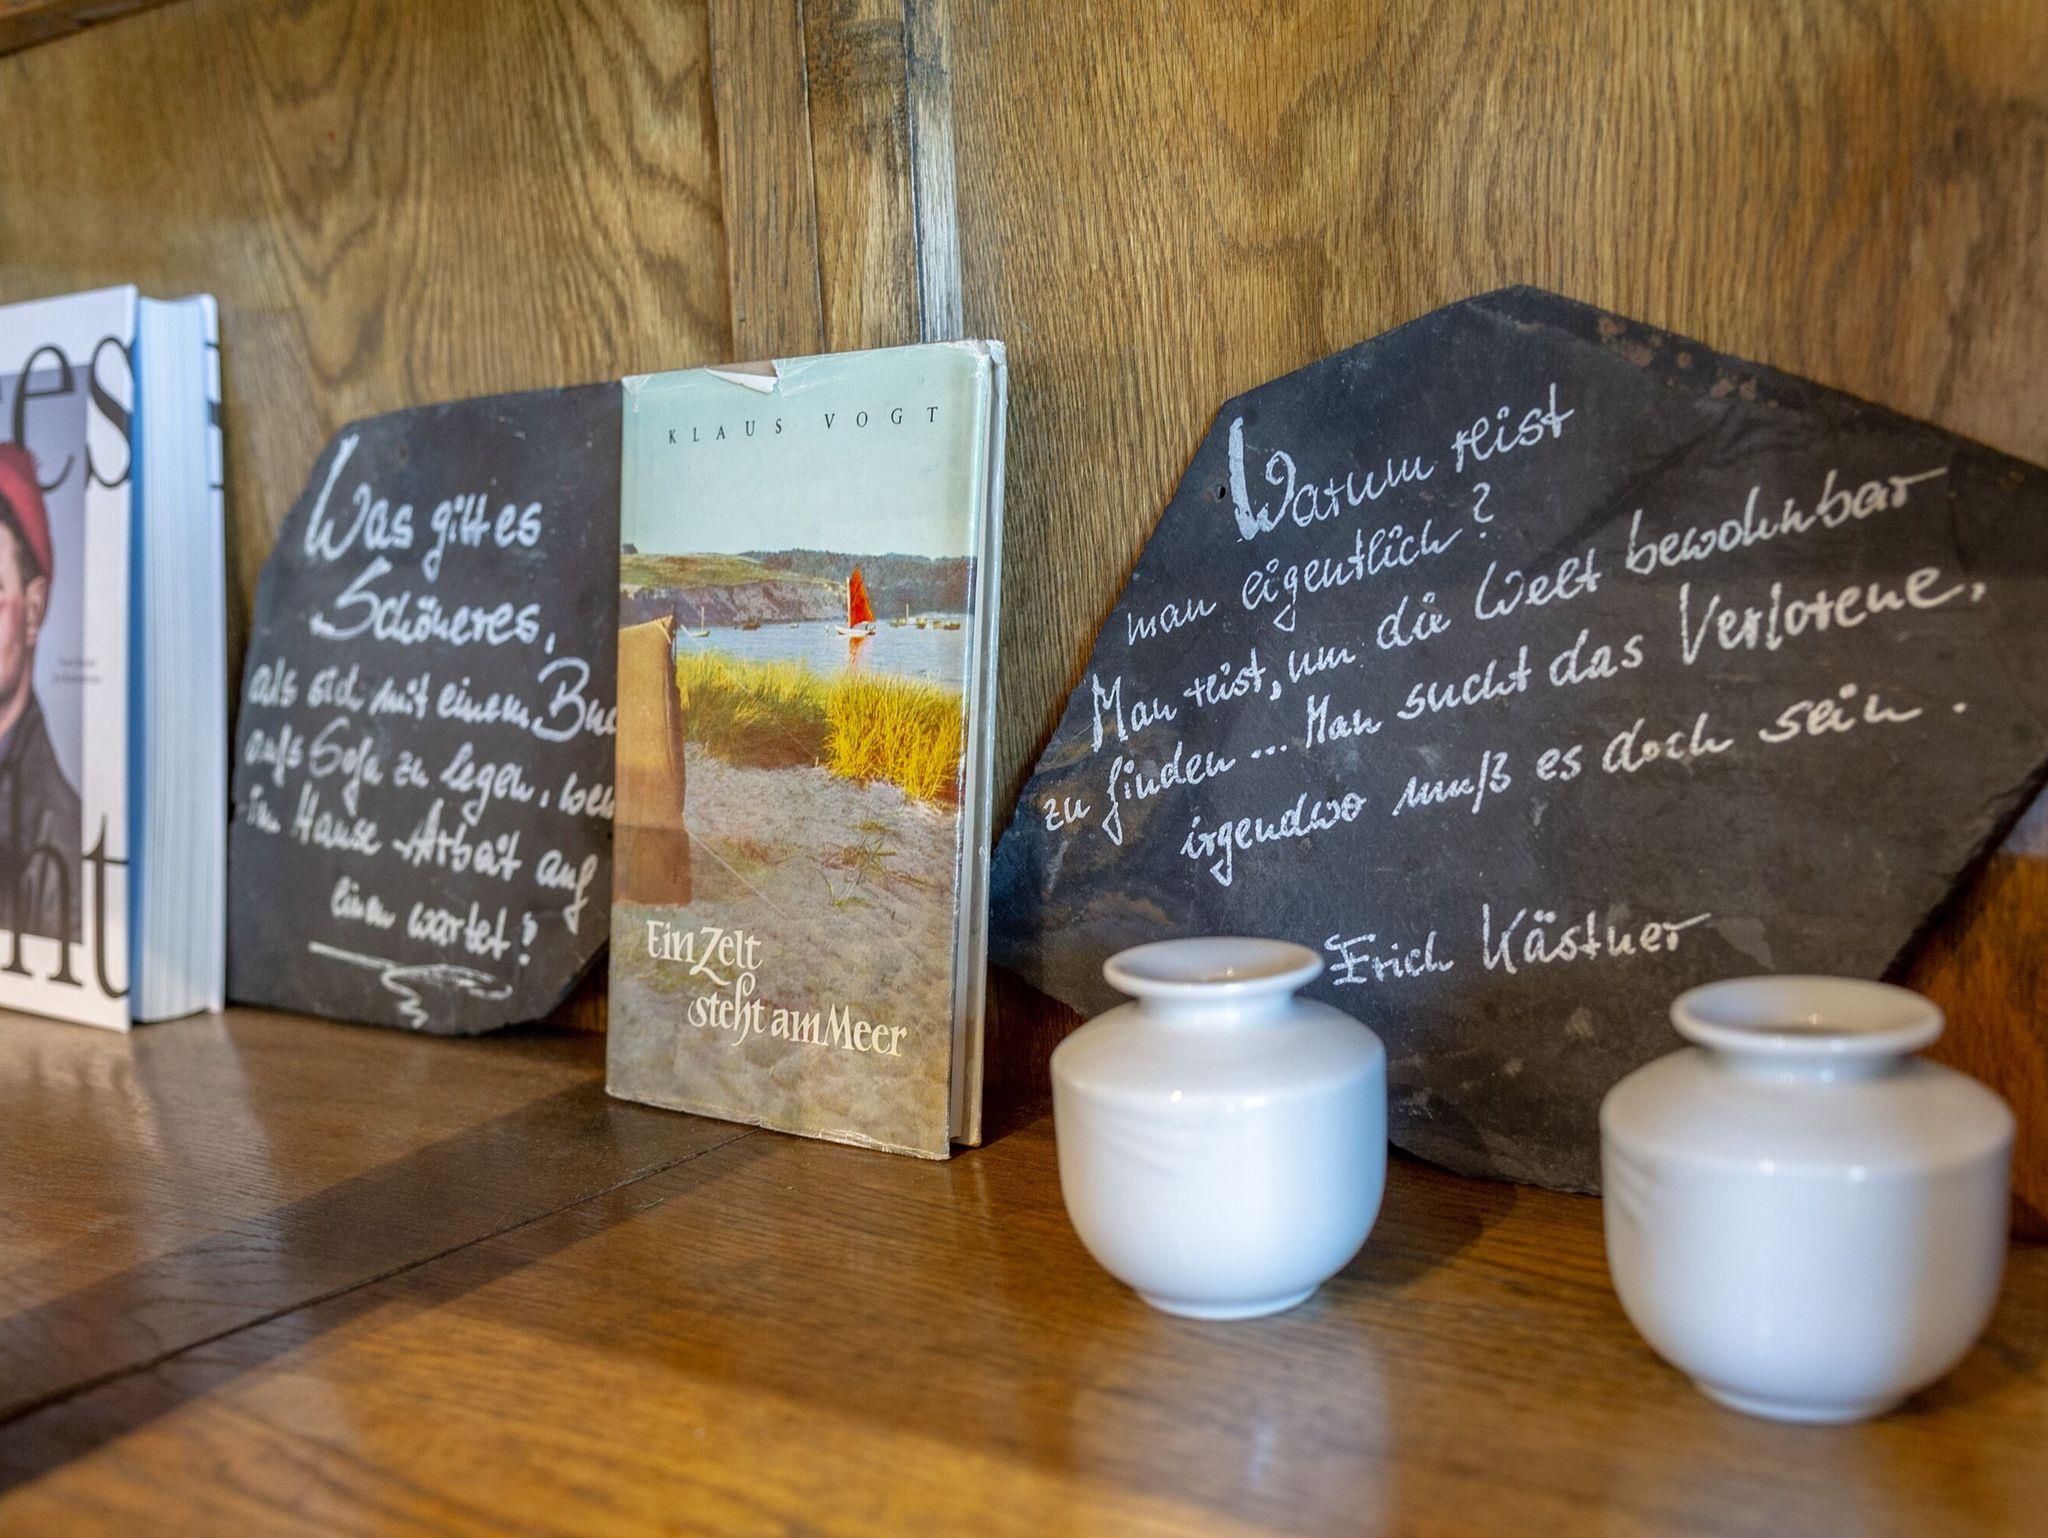 es
nt
Was gibt es
Schöneres,
als sich mit einem Buc
aufs Sofa zu legen, wen
im Hause Arbeit auf
einen wartet!
KLAUS VOGT
Ein Zelt
steht am Meer
Warum reist
man eigentlich?
Man reist, um die Welt bewohnbar
zu finden... Man sucht das Verlorene,
irgendwo muß es doch sein.
Erich Kästner